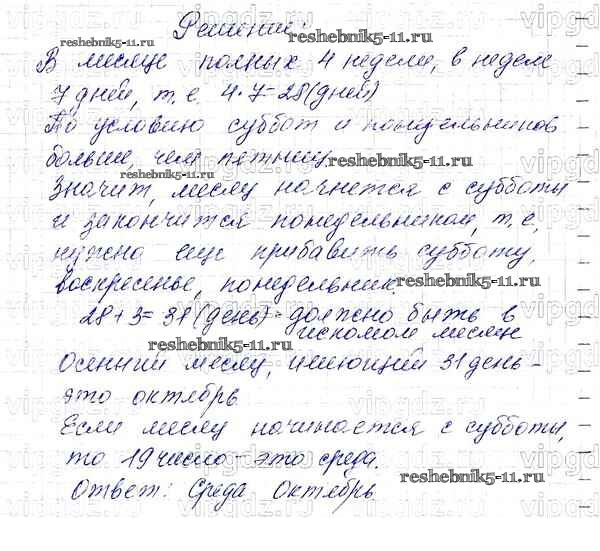 Решение:
В месяце полных 4 недели, в неделе
7 дней, т. е. 4·7=28 (дней)
По условию суббот и понедельников
больше, чем пятниц.
Значит, месяц начнется с субботы
и закончится понедельником, т. е.
нужно еще прибавить субботу,
воскресенье, понедельник.
28+3=31 (день) - должно быть в
искомом месяце
Осенний месяц, имеющий 31 день -
это октябрь
Если месяц начинается с субботы,
то 19 число - это среда.
Ответ: среда октябрь
reshebnik5-11.ru
reshebnik5-11.ru
reshebnik5-11.ru
reshebnik5-11.ru
reshebnik5-11.ru
reshebnik5-11.ru
reshebnik5-11.ru